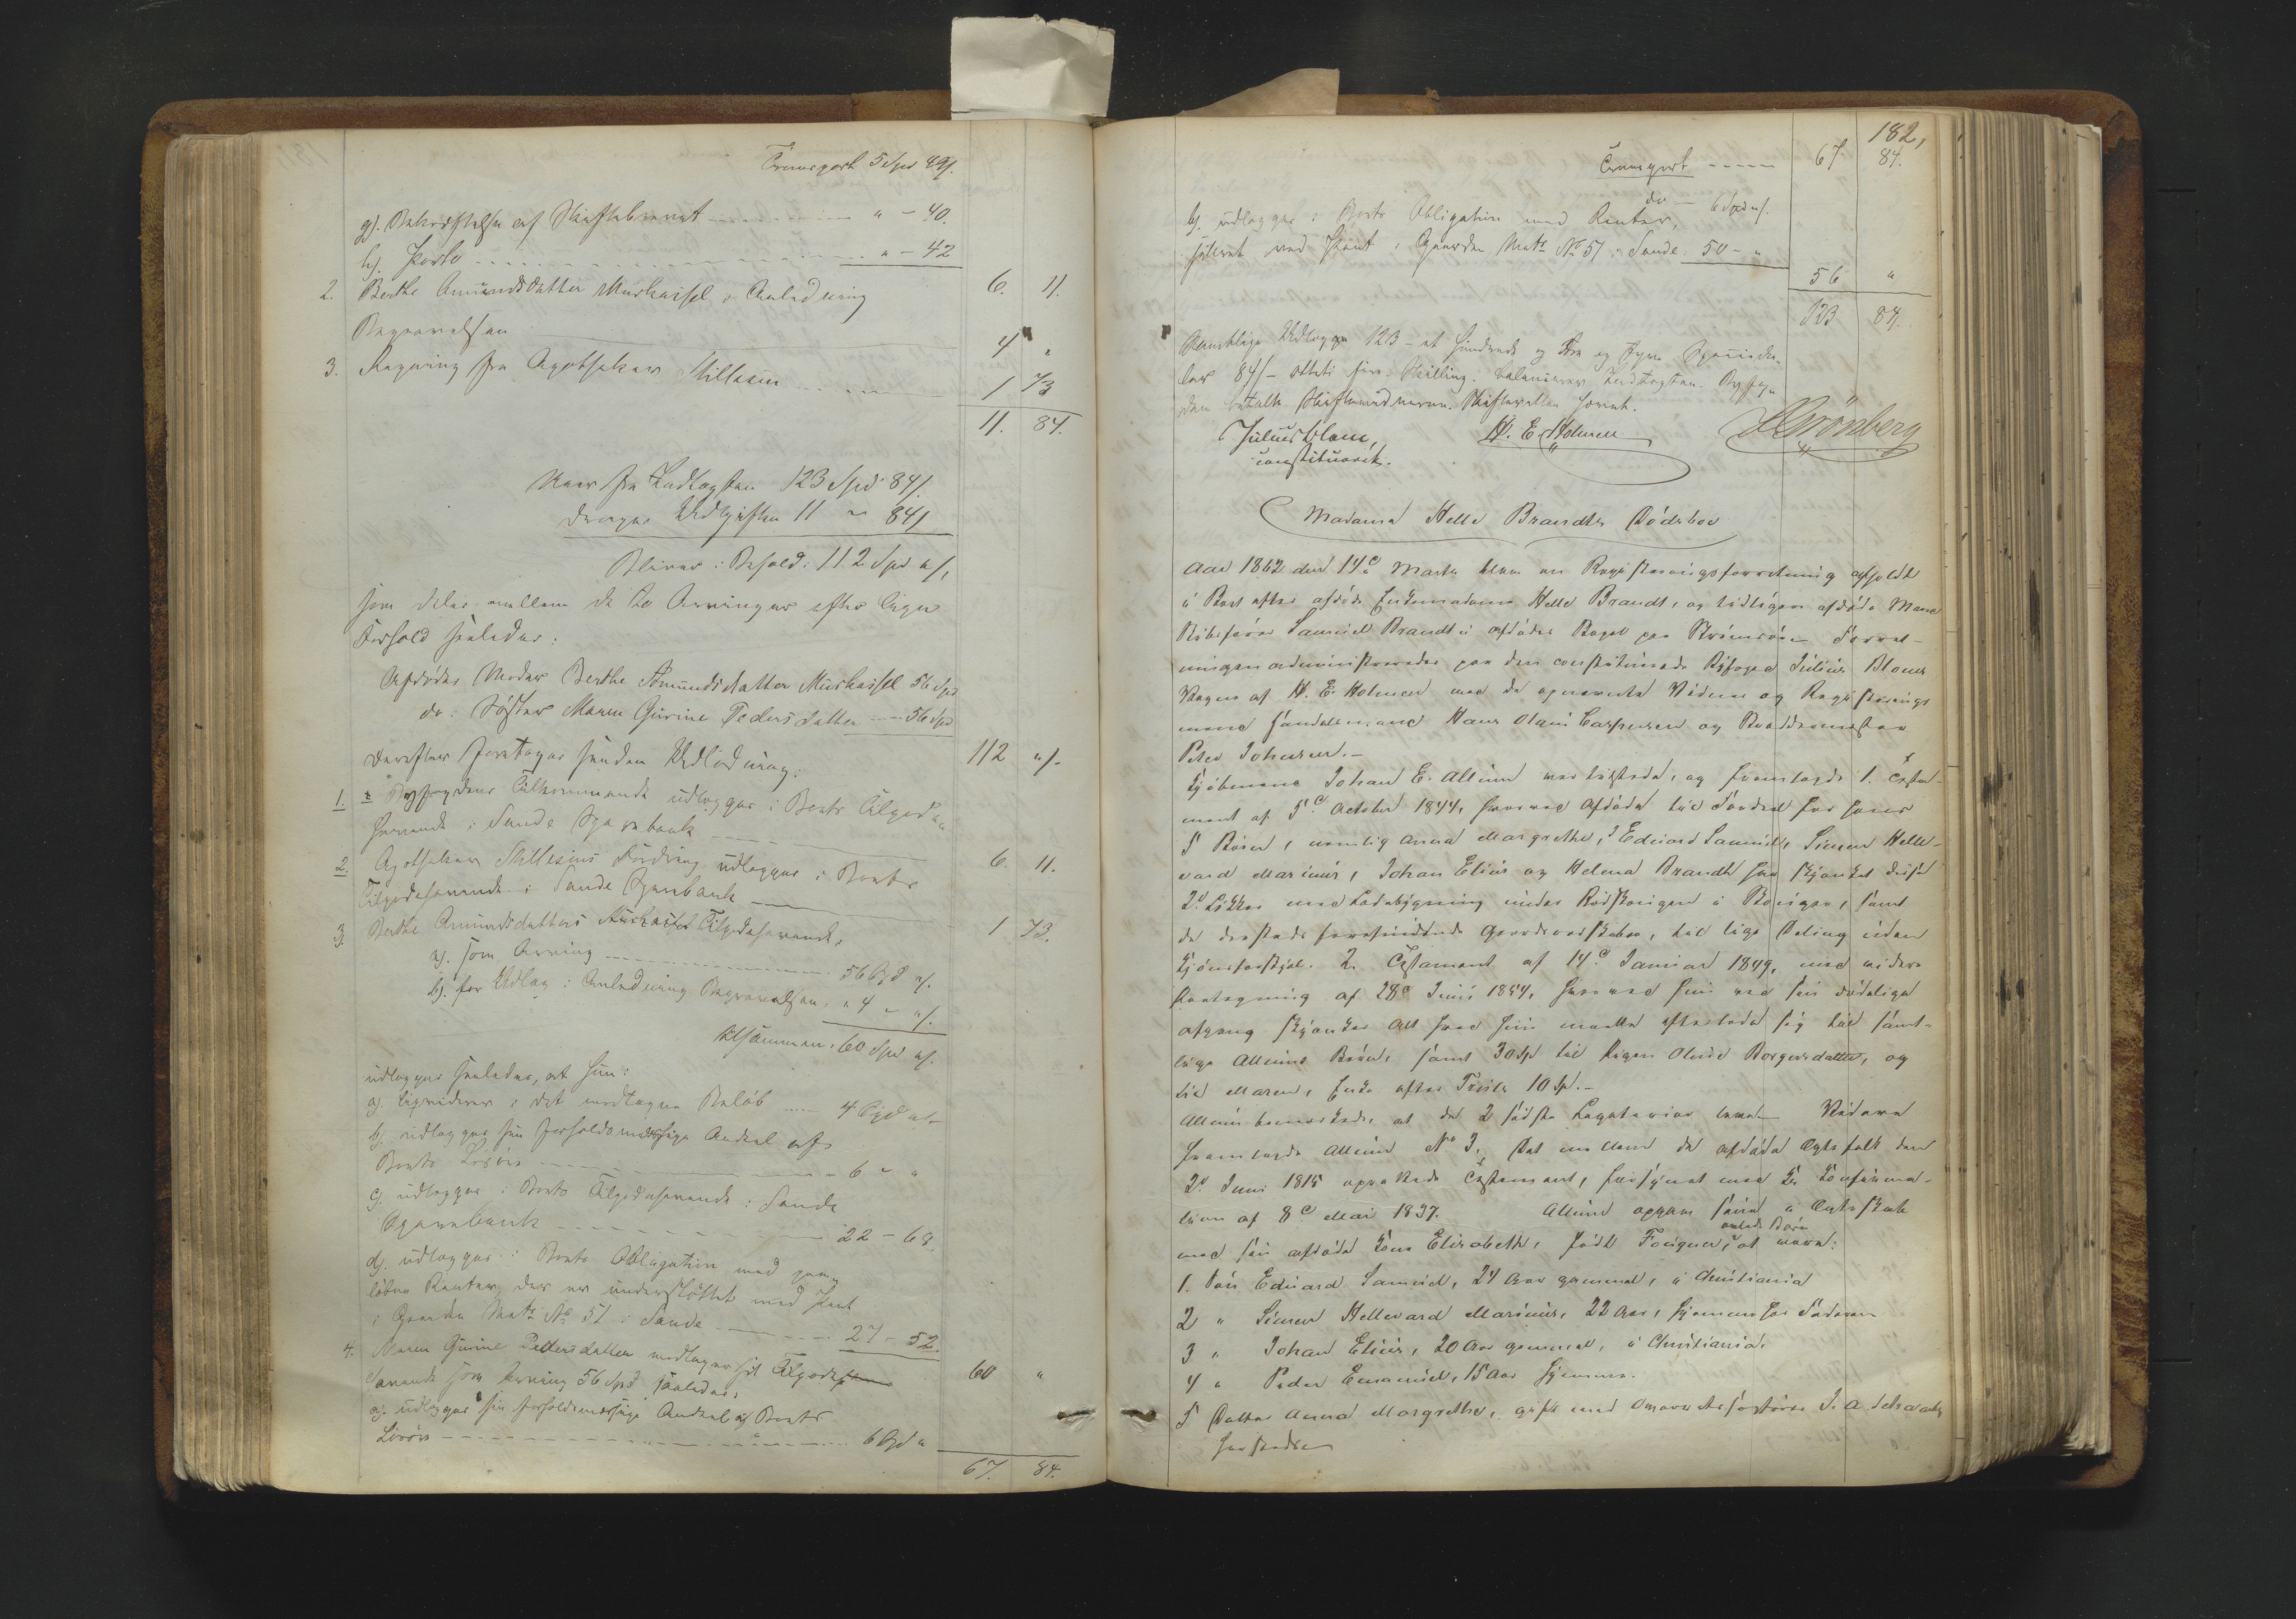 Transport 5 Spd 49 ſ.
g). Bekræftelse af Skiftebrevet " - 40.
h). Porto " - 42
6. 11.
2. Berthe Amundsdatter Muskaisel i Anledning
Begravelsen 4 "
3. Regning fra Apotheker Stillesen 1 73
11. 84.
Naar fra Indtægten 123 Spd 84 ſ.
drages Udgiften 11 " 84 ſ
Bliver i Behold: 112 Spd " ſ,
som deles mellem de to Arvinger efter lige
Forhold saaledes:
Afdødes Moder Berthe Amundsdatter Muskaisel 56 Spd
do: Søster Maren Gurine Pedersdatter 56 Spd
112 " ſ.
Derefter foretages saadan Udlodning:
1. Byfogdens Tilkommende udlægges i Boets Tilgode
havende i Sande Sparebank 6. 11.
2. Apotheker Stillesens Fordring udlægges i Boets
Tilgodehavende i Sande Sparebank 1 73.
3. Berthe Amundsdatters Muskaisel Tilgodehavende,
a). som Arving 56 Spd " ſ.
b). for Udlæg i Anledning Begravelsen " 4 " " ſ.
tilsammen: 60 Spd " ſ.
udlægges saaledes, at hun:
a). liqviderer i det modtagne Beløb 4 Spd " -
b). udlægges sin forholdsmæssige Andeel af
Boets Løsøre 6 " "
c). udlægges i Boets Tilgodehavende i Sande
Sparebank 22 - 68.
d). udlægges i Boets Obligation med paa-
løbne Renter, der er understøttet med Pant
i Gaarden Matr No 51 i Sande 27 - 52.
60 "
4. Maren Gurine Pedersdatter modtager sit Tilgode
havende som Arving 56 Spd saaledes:
a). udlægges sin forholdsmæssige Andeel af Boets
Løsøre 6 Spd "
67. 84.
182,
Transport 67 84.
do - 6 Spd " ſ.
b). udlægges i Boets Obligation med Renter,
sikret ved Pant i Gaarden Matr No 51 i Sande 50 - "
56 "
123 84.
Samtlige Udlæg 123 - et hundrede og tre og tyve Speciedа-
ler 84 ſ - otteti fire Skilling, balancerer Indtægten. Byfog-
den betalte Skiftemændene. Skifterettens hævet.
Julius Blom, H. E. Holmen Grönberg
constitueret.
Madame Helle Brandts Dødsboe
Aar 1862 den 14de Marts blev en Registreringsforretning afholdt
i Boet efter afdøde Enkemadame Helle Brandt, og tidligere afdøde Mand
Skibsfører Samuel Brandt i afdødes Bopæl paa Strömsöe. Forret-
ningen administreredes paa den constituerede Byfoged Julius Bloms
Vegne af H. E. Holmen med de opnævnte Vidner og Registrerings
mænd Handelsmand Hans Olaus Caspersen og Snedkermester
Peter Johnsen.-
Kjøbmand Johan E. Allum var tilstede, og fremlagde 1. Testa-
ment af 5te October 1844, hvorved Afdøde til Fordeel for hans
5 Børn, nemlig Anna Margrethe, Eduard Samuel, Simen Helle-
vard Marinus, Johan Elius og Helena Brandt har skjænket disse
2de Løkker med Ladebygning under Rødskougen i Skouger, samt
de dersteds forefindende Gaardsredskaber, til lige Deling uden
Kjønsforskjel. 2. Testament af 14de Januar 1849, med videre
Paategning af 28de Juni 1854, hvorved hun ved sin dødelige
afgang skjænker Alt hvad hun maatte efterlade sig til samt-
lige Allums Børn, samt 30 Sp til Pigen Olea Borgersdatter, og
til Maren, Enke efter Friis 10 Sp.-
Allum bemærkede, at de 2 sidste Legatarier lever. Videre
fremlagde Allum No 3. Det mellem de afdøde Egtefolk den
2de Juni 1815 oprettede Testament, forsynet med Kl. Confirma-
tion af 8de Mai 1837. Allum opgav sine i Egteskab
avlede Børn
med sin afdøde Kone Elisabeth, født Fougner, at være:
1. Søn Eduard Samuel, 24 Aar gammel, i Christiania
2 " Simen Hellevard Marinus, 22 Aar, hjemme hos Faderen
3 " Johan Elius, 20 Aar gammel, i Christiania.
4 " Peder Emanuel, 15 Aar hjemme.
5 Datter Anna Margrethe, gift med J. A. Schwartz
hersteds